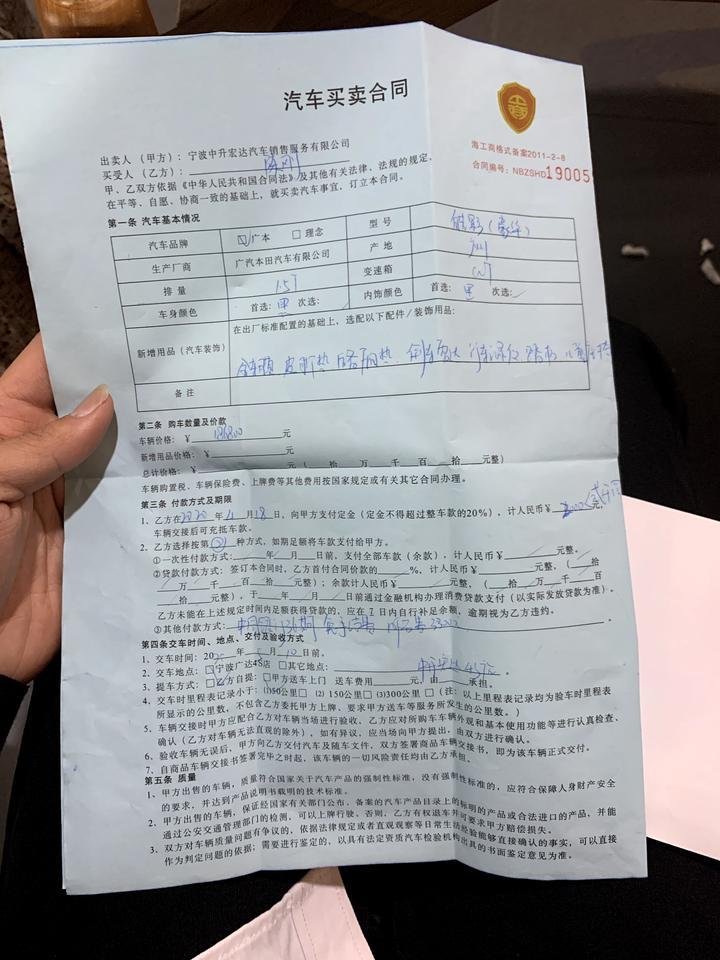 汽车买卖合同
海工商格式备案2011-2-8
合同编号：NBZSHD19005
出卖人（甲方）：宁波中升宏达汽车销售服务有限公司
买受人（乙方）：
甲、乙双方依据《中华人民共和国合同法》及其他有关法律、法规的规定，
在平等、自愿、协商一致的基础上，就买卖汽车事宜，订立本合同。
第一条 汽车基本情况
汽车品牌 ☑广本 □理念 型号 （豪华）
生产厂商 广汽本田汽车有限公司 产地 广州
排量 1.5T 变速箱 CVT
车身颜色 首选：黑 次选： 内饰颜色 首选：黑 次选：
新增用品（汽车装饰） 在出厂标准配置的基础上，选配以下配件/装饰用品：
备注
第二条 购车数量及价款
车辆价格：￥ 元
新增用品价格：￥ 元
总计价格：￥ 元（ 拾 万 千 百 拾 元整）
车辆购置税、车辆保险费、上牌费等其他费用按国家规定或有关其它合同办理。
第三条 付款方式及期限
1、乙方在2020年4月18日，向甲方支付定金（定金不得超过整车款的20%），计人民币￥ 元，
车辆交接后可充抵车款。
2、乙方选择按第 种方式，如期足额将车款支付给甲方。
①一次性付款方式： 年 月 日前，支付全部车款（余款），计人民币￥ 元整。
②贷款付款方式：签订本合同时，乙方首付合同价款的 %，计人民币￥ 元整，（ 拾
万 千 百 拾 元整）；余款计人民币￥ 元整，（ 拾 万 千 百
拾 元整），于 年 月 日前通过金融机构办理消费贷款支付（以实际发放贷款为准）。
乙方未能在上述规定时间内足额获得贷款的，应在7日内自行补足余额，逾期视为乙方违约。
③其他付款方式：
第四条交车时间、地点、交付及验收方式
1、交车时间：202 年 月 日。
2、交车地点：□宁波广达4S店 □其它地点：
3、提车方式：□乙方自提；□甲方送车上门 送车费用 元，由 承担。
4、交车时里程表记录小于：⑴50公里□ ⑵ 150公里□ ⑶300公里 □（注：以上里程表记录均为验车时里程表
所显示的公里数，不包含乙方委托甲方上牌、要求甲方送车等服务所发生的公里数。）
5、车辆交接时甲方应配合乙方对车辆当场进行验收，乙方应对所购车车辆外观和基本使用功能等进行认真检查、
确认（乙方对车辆无法直观的除外），如有异议，应当场向甲方提出，由双方进行确认。
6、验收车辆无误后，甲方向乙方交付汽车及随车文件，双方签署商品车辆交接书，即为该车辆正式交付。
7、自商品车辆交接书签署完毕之时起，该车辆的一切风险责任均由乙方承担。
第五条 质量
1、甲方出售的车辆，质量符合国家关于汽车产品的强制性标准，没有强制性标准的，应符合保障人身财产安全
的要求，并达到产品说明书载明的技术标准。
2、甲方出售的车辆，保证经国家有关部门公布、备案的汽车产品目录上的标明的产品或合法进口的产品，并能
通过公安交通管理部门的检测，可以上牌行驶。否则，乙方有权退车并可要求甲方赔偿损失。
3、双方对车辆质量问题有争议的，依据法律规定或者直观观察等日常生活经验能够直接确认的事实，可以直接
作为判定问题的依据；需要进行鉴定的，以具有法定资质汽车检验机构出具的书面鉴定意见为准。